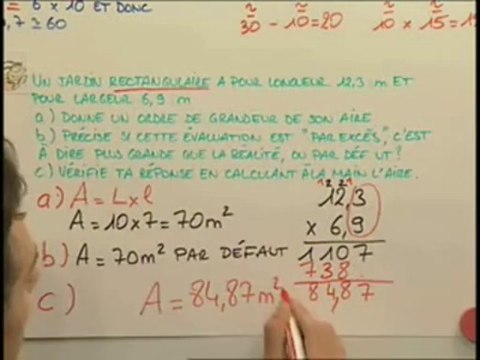 = 6 x 10 ET DONC
,7 ≅ 60
30 - 10 = 20
10 x 15 = 1
UN JARDIN RECTANGULAIRE A POUR LONGUEUR 12,3 m ET
POUR LARGEUR 6,9 m
a) DONNE UN ORDRE DE GRANDEUR DE SON AIRE
b) PRÉCISE SI CETTE ÉVALUATION EST "PAR EXCÈS", C'EST
À DIRE PLUS GRANDE QUE LA RÉALITÉ, OU PAR DÉFAUT?
c) VÉRIFIE TA RÉPONSE EN CALCULANT À LA MAIN L'AIRE.
a) A = L x l
A = 10 x 7 = 70 m²
b) A = 70 m² PAR DÉFAUT
c) A = 84,87 m²
12,3
x 6,9
1107
738.
84,87